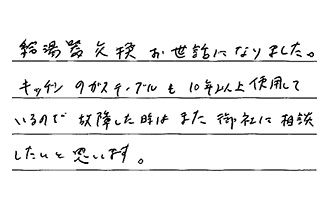 給湯器交換お世話になりました。
キッチンのガステーブルも10年以上使用して
いるので故障した時はまた御社に相談
したいと思います。